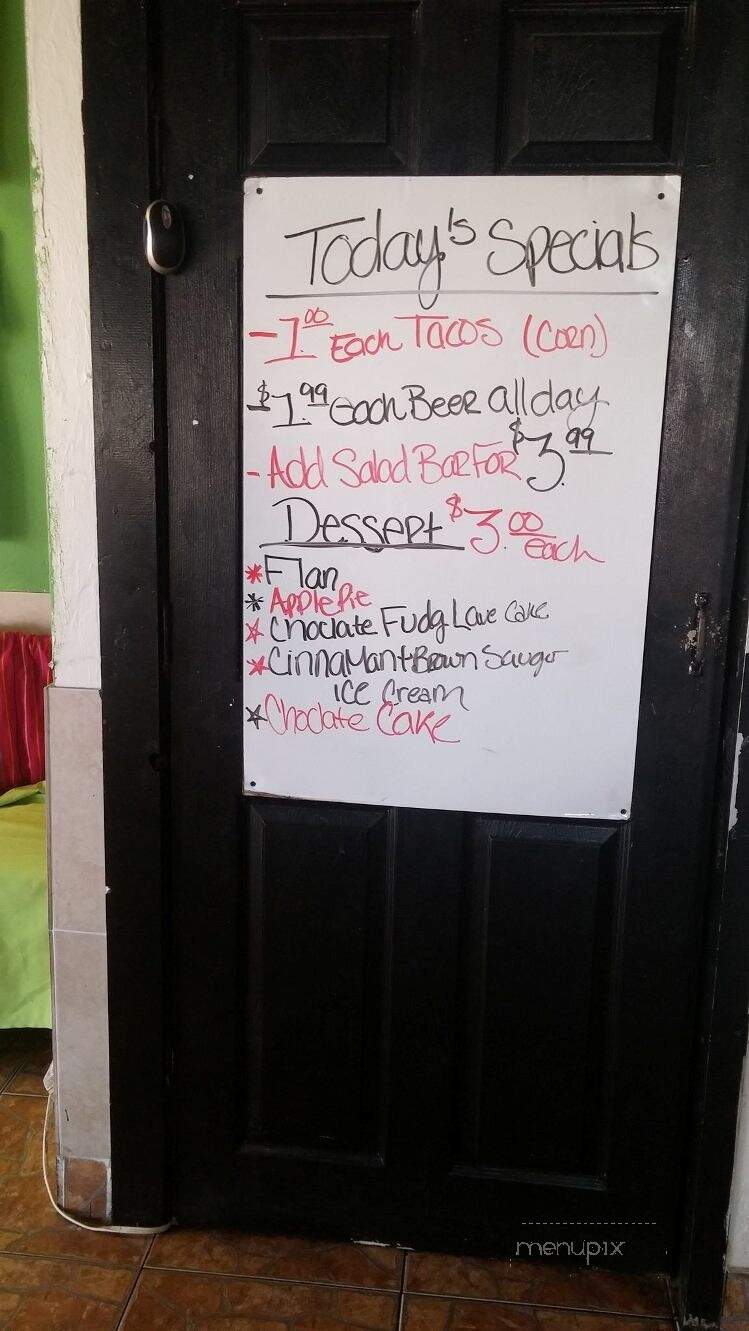 Today's Specials
- 1.00 Each Tacos (Corn)
- $1.99 each Beer all day
- Add Salad Bar For $3.99
Dessert $3.00 each
* Flan
* Apple Pie
* Choclate Fudg Lave Cake
* Cinnamant Brown Sauger
Ice Cream
* Choclate Cake
menupix